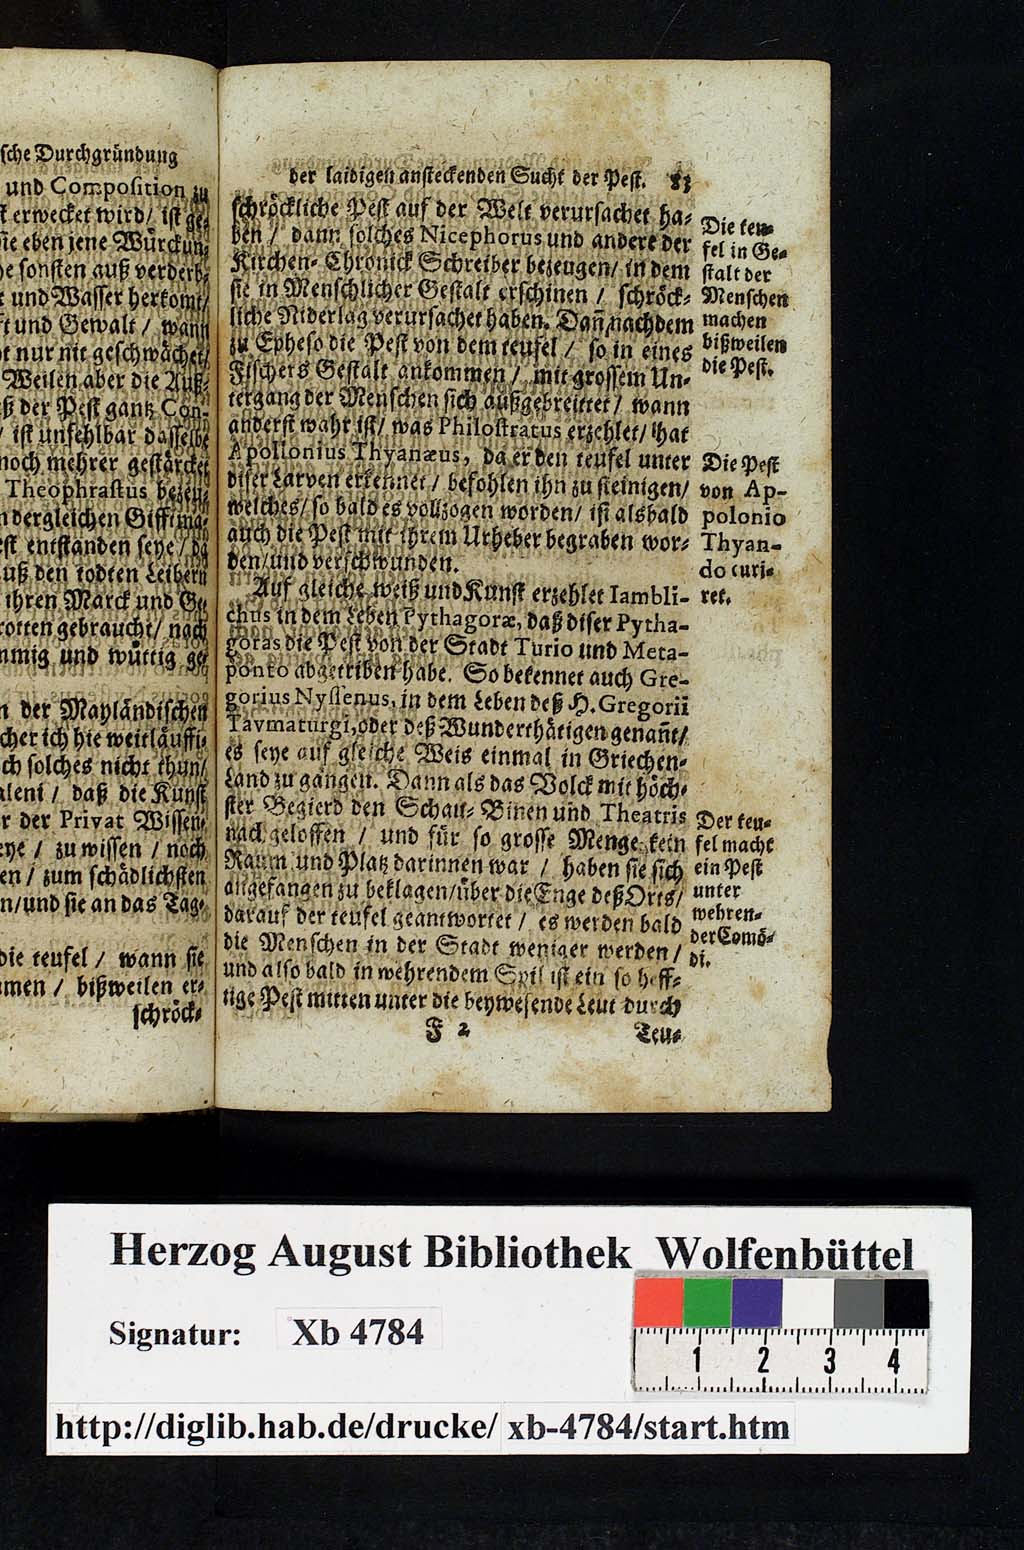 sche Durchgründung
und Composition zu
erwecket wird/ ist ge-
sie eben jene Würckun-
sonsten auß verderb-
und Wasser herkomt/
und Gewalt / wann
nur nit geschwächet/
Weilen aber die Auß-
der Pest gantz Con-
/ ist unfehlbar dasselbe
noch mehrer gestärcket
Theophrastus bezeu-
dergleichen Gifftma-
entstanden seye/ da
auß den todten Leibern
ihren Marck und Ge-
rotten gebraucht/ nach
und wüttig ge-
der Mayländischen
ich hie weitläuffi-
solches nicht thun/
aleni / daß die Kunst
der Privat Wissen-
seye / zu wissen / noch
/ zum schädlichsten
/und sie an das Tag-
die teufel / wann sie
/ bißweilen er-
schröck-
der laidigen ansteckenden Sucht der Pest. 83
schröckliche Pest auf der Welt verursachet ha-
ben / dann solches Nicephorus und andere der
Kirchen- Chronick Schreiber bezeugen/ in dem
sie in Menschlicher Gestalt erschinen / schröck-
liche Niderlag verursachet haben. Dañ/nachdem
zu Epheso die Pest von dem teufel / so in eines
Fischers Gestalt ankommen / mit grossem Un-
tergang der Menschen sich außgebreittet / wann
anderst wahr ist / was Philostratus erzehlet/ hat
Apollonius Thyanæus, da er den teufel unter
diser Larven erkennet / befohlen ihn zu steinigen/
welches/ so bald es vollzogen worden/ ist alsbald
auch die Pest mit ihrem Urheber begraben wor-
den/und verschwunden.
Auf gleiche weiß und Kunst erzehlet Iambli-
chus in dem Leben Pythagoræ, daß diser Pytha-
goras die Pest von der Stadt Turio und Meta-
ponto abgetriben habe. So bekennet auch Gre-
gorius Nyssenus, in dem Leben deß H. Gregorii
Tavmaturgi, oder deß Wunderthätigen genañt/
es seye auf gleiche Weis einmal in Griechen-
Land zu gangen. Dann als das Volck mit höch-
ster Begierd den Schau- Binen und Theatris
nach geloffen / und für so grosse Menge kein
Raum und Platz darinnen war / haben sie sich
angefangen zu beklagen/über die Enge deß Orts/
darauf der teufel geantwortet / es werden bald
die Menschen in der Stadt weniger werden /
und also bald in wehrendem Spil ist ein so heff-
tige Pest mitten unter die beywesende Leut durch
F 2 Teu-
Die teu-
fel in Ge-
stalt der
Menschen
machen
bißweilen
die Pest.
Die Pest
von Ap-
polonio
Thyan-
do curi-
ret.
Der teu-
fel macht
ein Pest
unter
wehren-
der Comö-
di.
Herzog August Bibliothek Wolfenbüttel
Signatur: Xb 4784
1 2 3 4
http://diglib.hab.de/drucke/ xb-4784/start.htm